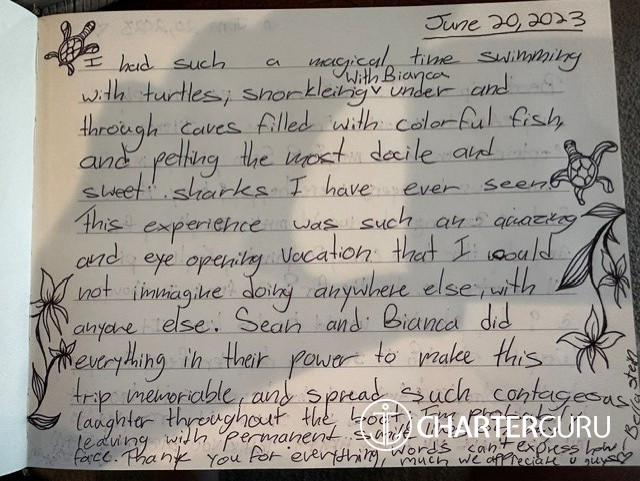 June 20, 2023
I had such a magical time swimming
with turtles, snorkleing with Bianca under and
through caves filled with colorful fish,
and petting the most docile and
sweet sharks I have ever seen.
This experience was such an amazing
and eye opening vacation that I would
not immagine doing anywhere else, with
anyone else. Sean and Bianca did
everything in their power to make this
trip memoriable, and spread such contageous
laughter throughout the boat I'm probably
leaving with permanent smile
face. Thank you for everything, words can't express how
much we appreciate u guys
CHARTERGURU